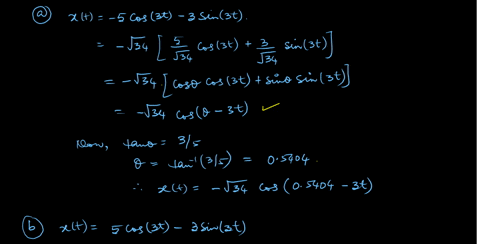 (a) x(t) = -5 cos(3t) - 3 sin(3t).
= -√34 [ 5/√34 cos(3t) + 3/√34 sin(3t) ]
= -√34 [ cosθ cos(3t) + sinθ sin(3t) ]
= -√34 cos(θ - 3t) ✓
Now, tanθ = 3/5
θ = tan⁻¹(3/5) = 0.5404.
∴ x(t) = -√34 cos(0.5404 - 3t)
(b) x(t) = 5 cos(3t) - 3 sin(3t)